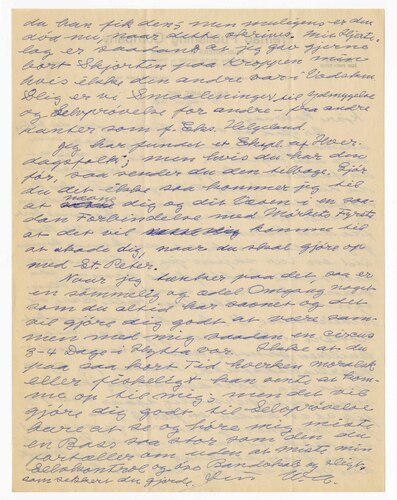 du kan fik den; men muligens er den
død nu, naar dette skrives. Min Hjerte-
lag er saadant at jeg gir gjerne
bort Skjorten paa Kroppen min
hvis ikke den andre var i Vadsken
Slig er vi Smaalenninger, til Ydmygelse
og Selvprøvelse for andre fra andre
kanter som f. Eks. Helgeland.
Jeg har fundet et Expl. af Hver-
dagsfolk; men hvis du har den
før, saa sender du den tilbage. Gjør
du det ikke saa kommer jeg til
at mane dig og dit Væsen i en saa-
dan Forbindelse med Mørkets Fyrste
at det vil komme til
at skade dig, naar du skal gjøre op
med St. Peter.
Naar jeg tænker paa det saa er
en sømmelig og ædel Omgang noget
som du altid har savnet og det
vil gjøre dig godt at være sam-
men med mig saadan en circus
3-4 Dage i Hytta vor. Ikke at du
paa saa kort Tid hverken moralsk
eller aandeligt kan vente at kom-
me op til mig; men det vil
gjøre dig godt, til Selvprøvelse
bare at se og høre mig miste
en Bass saa stor som den du
fortæller om uden at miste min
Selvkontrol og
som sikkert du gjorde. Din